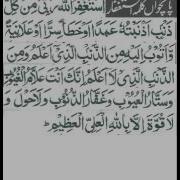 پانچواں کلمہ استغفار
اَسْتَغْفِرُ اللهَ رَبِّیْ مِنْ كُلِّ
ذَنْۢبٍ اَذْنَبْتُهٗ عَمَدًا اَوْ خَطَأً سِرًّا اَوْ عَلَانِيَةً
وَّاَتُوْبُ اِلَيْهِ مِنَ الذَّنْۢبِ الَّذِیْۤ اَعْلَمُ وَمِنَ
الذَّنْۢبِ الَّذِیْ لَاۤ اَعْلَمُ اِنَّكَ اَنْتَ عَلَّامُ الْغُيُوْبِ
وَسَتَّارُ الْعُيُوْبِ وَغَفَّارُ الذُّنُوْبِ وَلَا حَوْلَ وَ
لَا قُوَّةَ اِلَّا بِاللهِ الْعَلِیِّ الْعَظِيْمِ